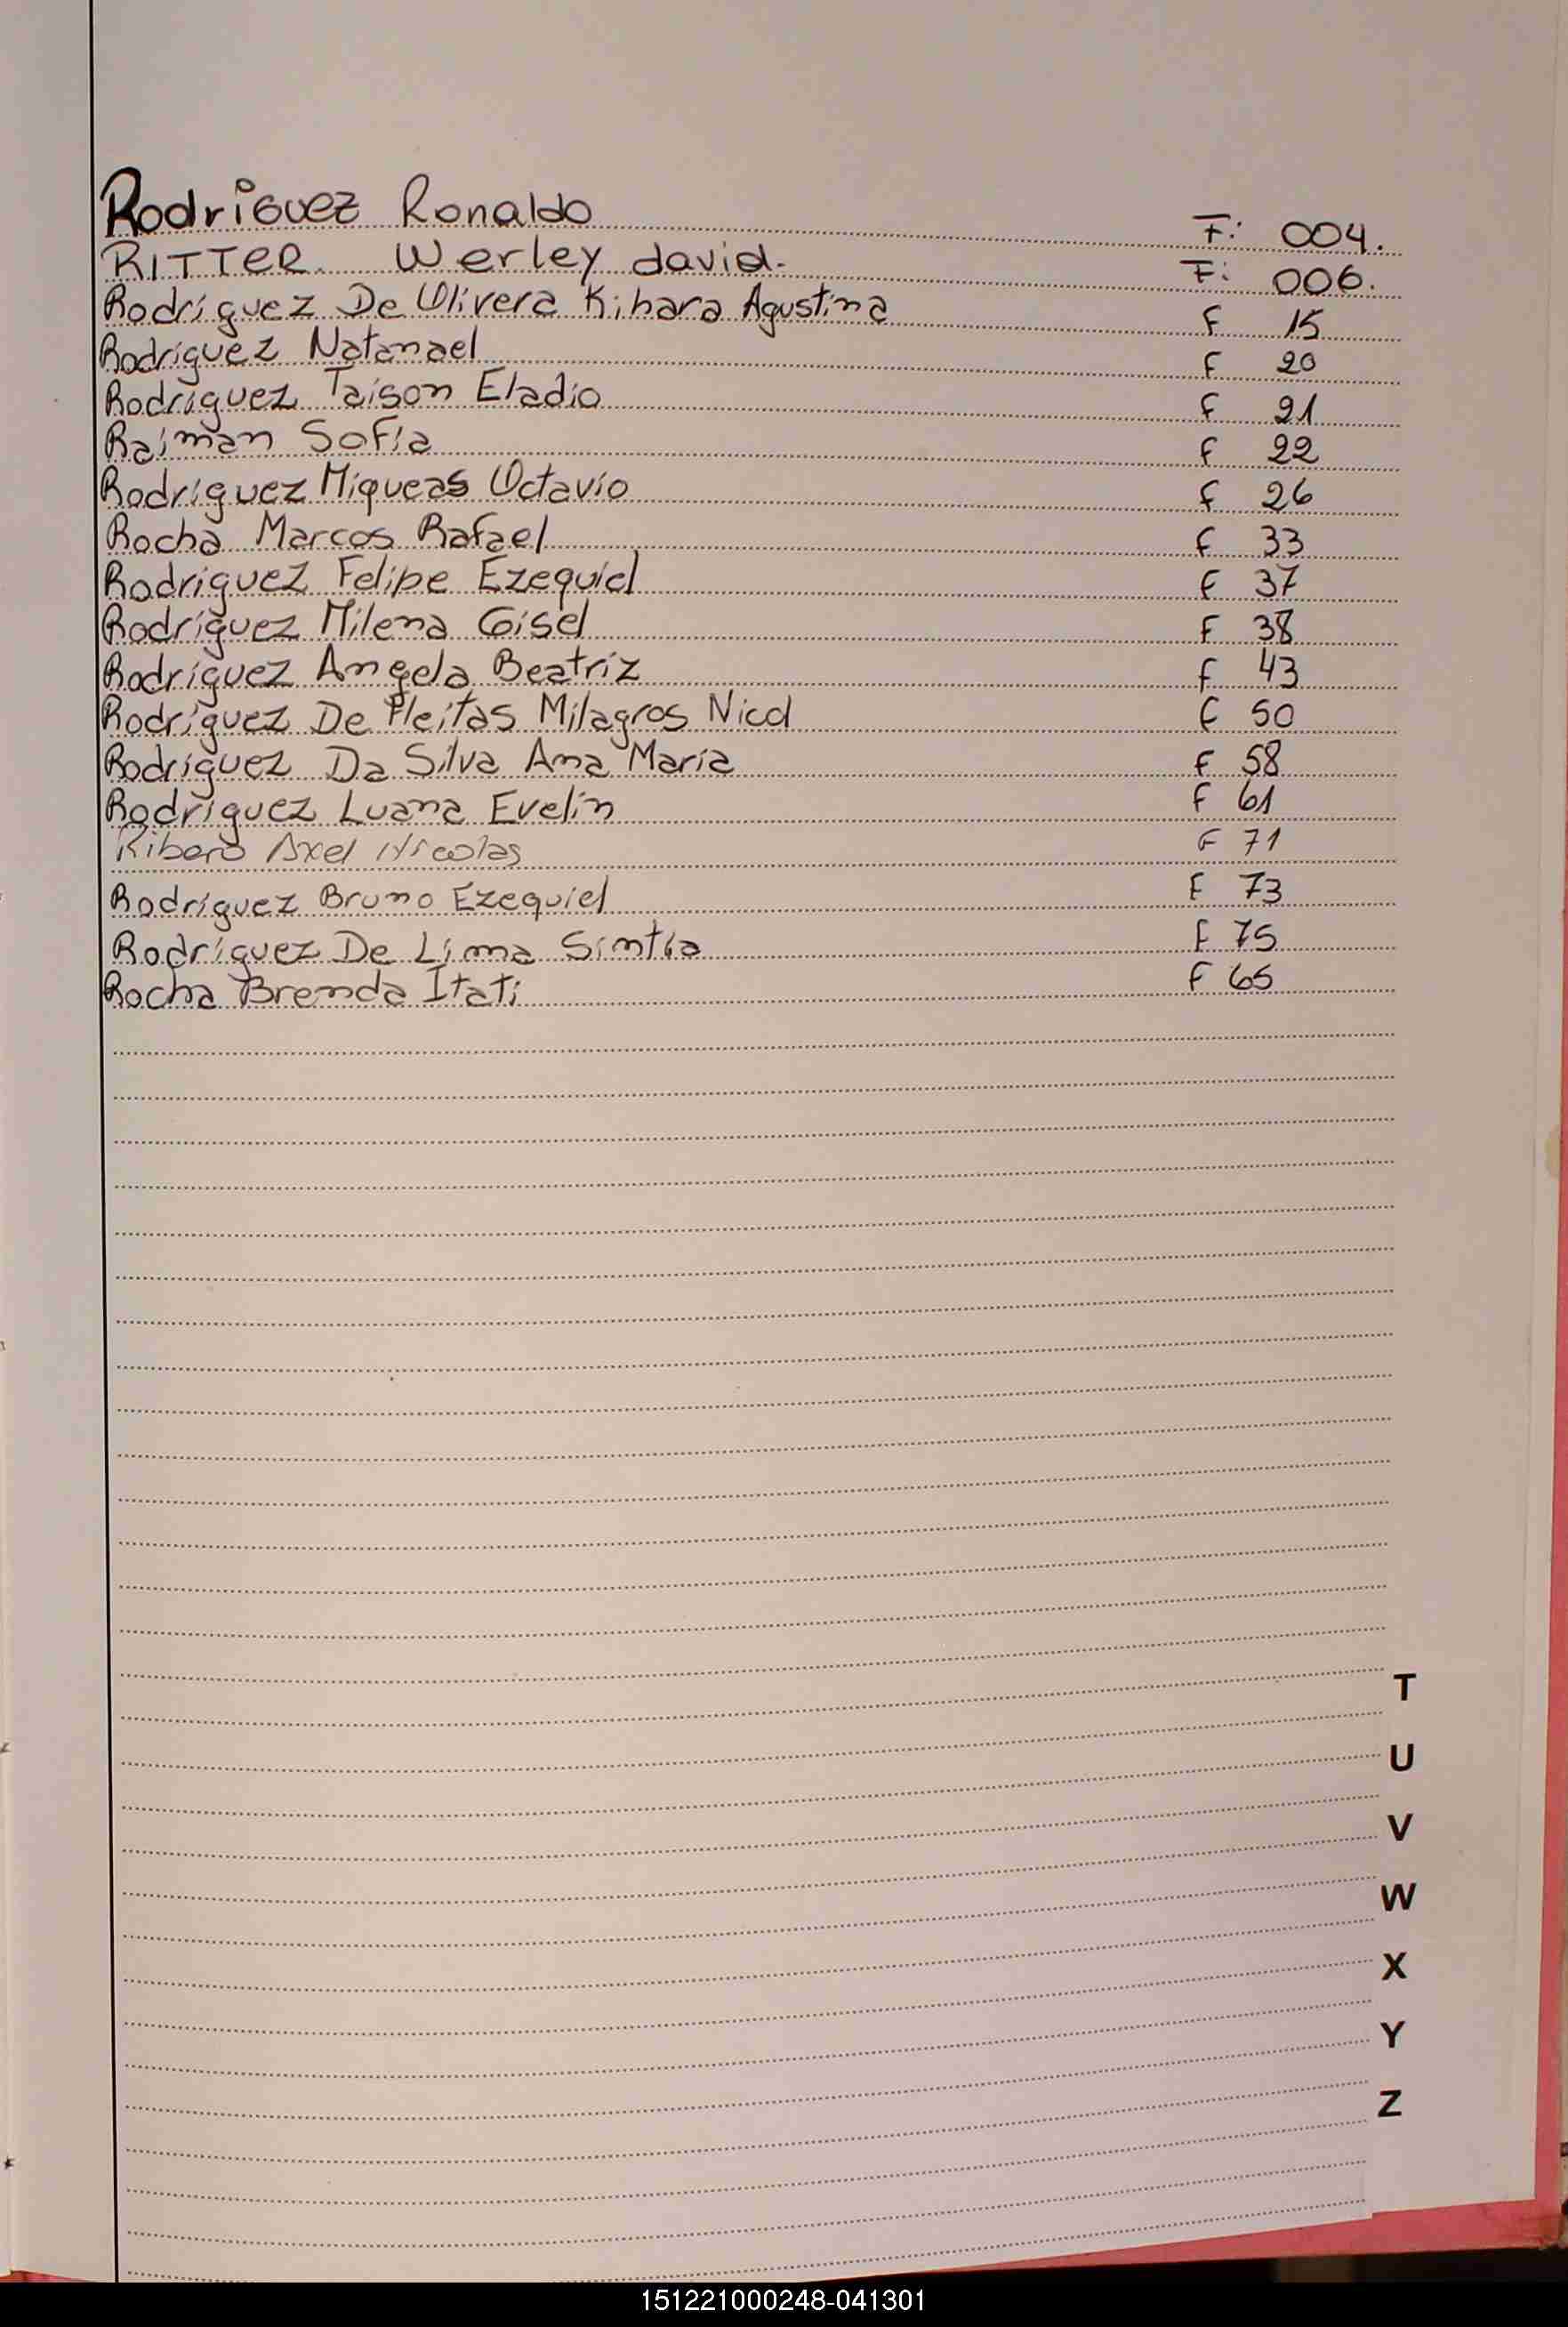 Rodriguez Ronaldo F: 004.
RITTER Werley david. F: 006.
Rodríguez De Olivera Kihara Agustina F 15
Rodríguez Natanael F 20
Rodríguez Taison Eladio F 21
Raiman Sofía F 22
Rodríguez Miqueas Octavio F 26
Rocha Marcos Rafael F 33
Rodriguez Felipe Ezequiel F 37
Rodríguez Milena Gisel F 38
Rodríguez Angela Beatriz F 43
Rodríguez De Fleitas Milagros Nicol F 50
Rodríguez Da Silva Ana María F 58
Rodríguez Luana Evelin F 61
Ribero Axel Nicolas F 71
Rodríguez Bruno Ezequiel F 73
Rodríguez De Lima Sintia F 75
Rocha Brenda Itati F 65
T
U
V
W
X
Y
Z
151221000248-041301